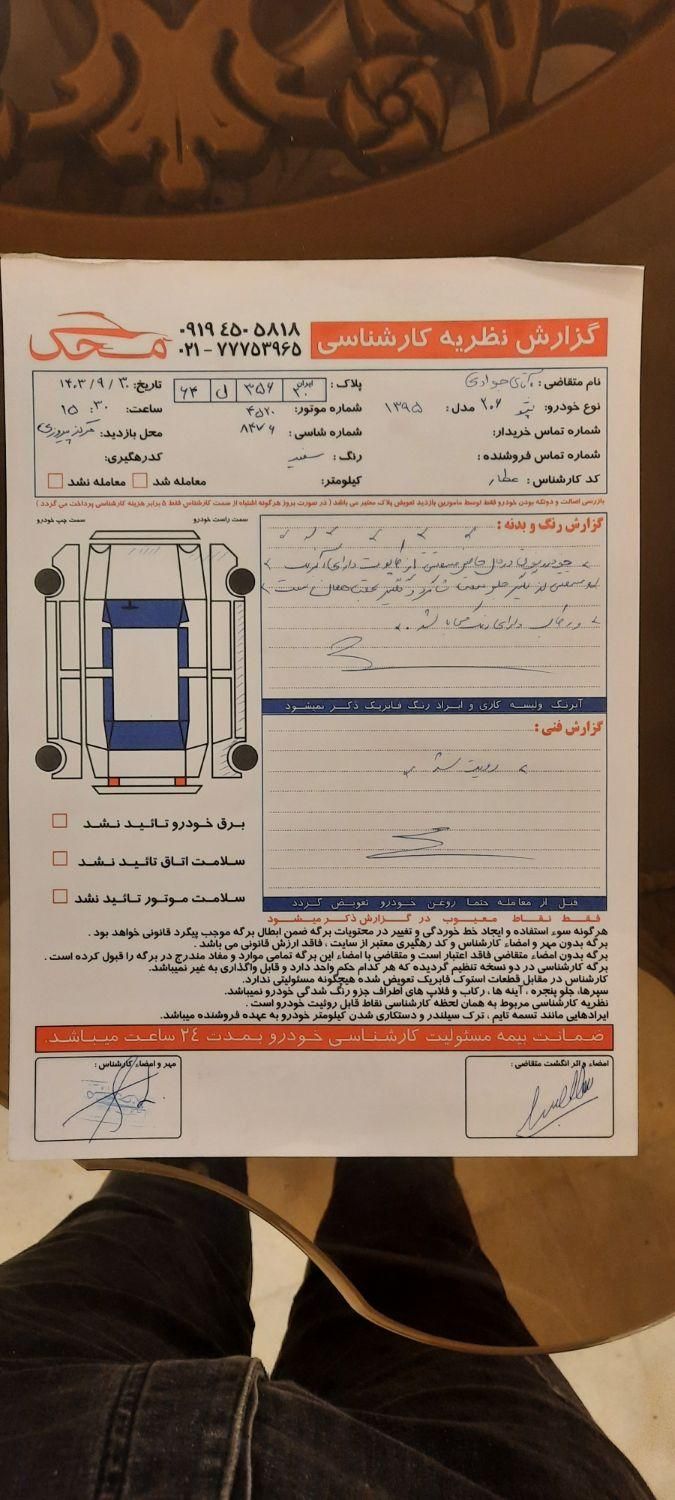 گزارش نظریه کارشناسی
۰۹۱۹ ۴۵۰ ۵۸۱۸
۰۲۱ - ۷۷۷۵۳۹۶۵
محک
نام متقاضی : آقای جوادی
پلاک : ایران ۲۰ ۳۵۶ ل ۶۴
تاریخ: ۱۴۰۳/۹/۳۰
نوع خودرو: پژو ۲۰۶ مدل: ۱۳۹۵
شماره موتور: ۴۵۲۰
ساعت: ۱۵:۳۰
شماره تماس خریدار:
شماره شاسی : ۸۴۷۶
محل بازدید:
شماره تماس فروشنده :
رنگ : سفید
کدرهگیری:
کد کارشناس : عطار
کیلومتر:
معامله شد
معامله نشد
بازرسی اصالت و دوتکه بودن خودرو فقط توسط مامورین بازدید تعویض پلاک معتبر می باشد ( در صورت بروز هرگونه اشتباه از سمت کارشناس فقط ۵ برابر هزینه کارشناسی پرداخت می گردد )
سمت راست خودرو
سمت چپ خودرو
گزارش رنگ و بدنه :
آبرنگ ولیسه کاری و ایراد رنگ فابریک ذکر نمیشود
گزارش فنی :
رویت شد
قبل از معامله حتما روغن خودرو تعویض گردد
برق خودرو تائید نشد
سلامت اتاق تائید نشد
سلامت موتور تائید نشد
فقط نقاط معیوب در گزارش ذکر میشود
هرگونه سوء استفاده و ایجاد خط خوردگی و تغییر در محتویات برگه ضمن ابطال برگه موجب پیگرد قانونی خواهد بود .
برگه بدون مهر و امضاء کارشناس و کد رهگیری معتبر از سایت ، فاقد ارزش قانونی می باشد .
برگه بدون امضاء متقاضی فاقد اعتبار است و متقاضی با امضاء این برگه تمامی موارد و مفاد مندرج در برگه را قبول کرده است .
برگه کارشناسی در دو نسخه تنظیم گردیده که هر کدام حکم واحد دارد و قابل واگذاری به غیر نمیباشد.
کارشناس در مقابل قطعات استوک فابریک تعویض شده هیچگونه مسئولیتی ندارد.
سپرها، جلو پنجره ، آینه ها ، رکاب و قلاب های اطراف جزو رنگ شدگی خودرو نمیباشد.
نظریه کارشناسی مربوط به همان لحظه کارشناسی نقاط قابل روئیت خودرو است .
ایرادهایی مانند تسمه تایم ، ترک سیلندر و دستکاری شدن کیلومتر خودرو به عهده فروشنده میباشد.
ضمانت بیمه مسئولیت کارشناسی خودرو بمدت ۲۴ ساعت میباشد.
امضاء و اثر انگشت متقاضی :
مهر و امضاء کارشناس :